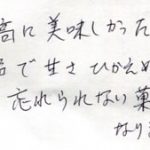 高に美味しかった
品で甘さひかえめ
忘れられない菓
なり